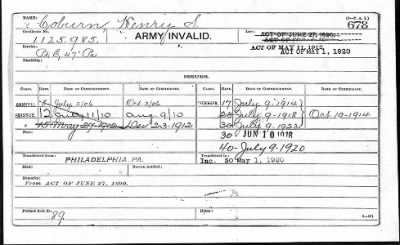 (3-P.A.1)
NAME: Coburn, Henry S. 678
Certificate No.: 1125.985. ARMY INVALID.
ACT OF JUNE 27, 1890.
ACT OF MAY 11, 1912
ACT OF MAY 1, 1920
Disability:
ISSUES.
CLASS. DATE OF COMMENCEMENT. DATE OF CERTIFICATE. CLASS. DATE OF COMMENCEMENT. DATE OF CERTIFICATE.
ORIGINAL July 3/06 Oct 3/06 17 July 9-1914
REISSUE 12 July 11/10 Aug. 9/10 July 9-1918 Oct 19-1914
May 29 1912 Dec 23-1912 30 July 9, 1922
30 JUN 10 1918
40 July 9-1920
Transferred to PHILADELPHIA PA. Transferred to
Inc. 50 May 1, 1920
Died:
Remarks:
From ACT OF JUNE 27, 1890.
Former Roll No. 89